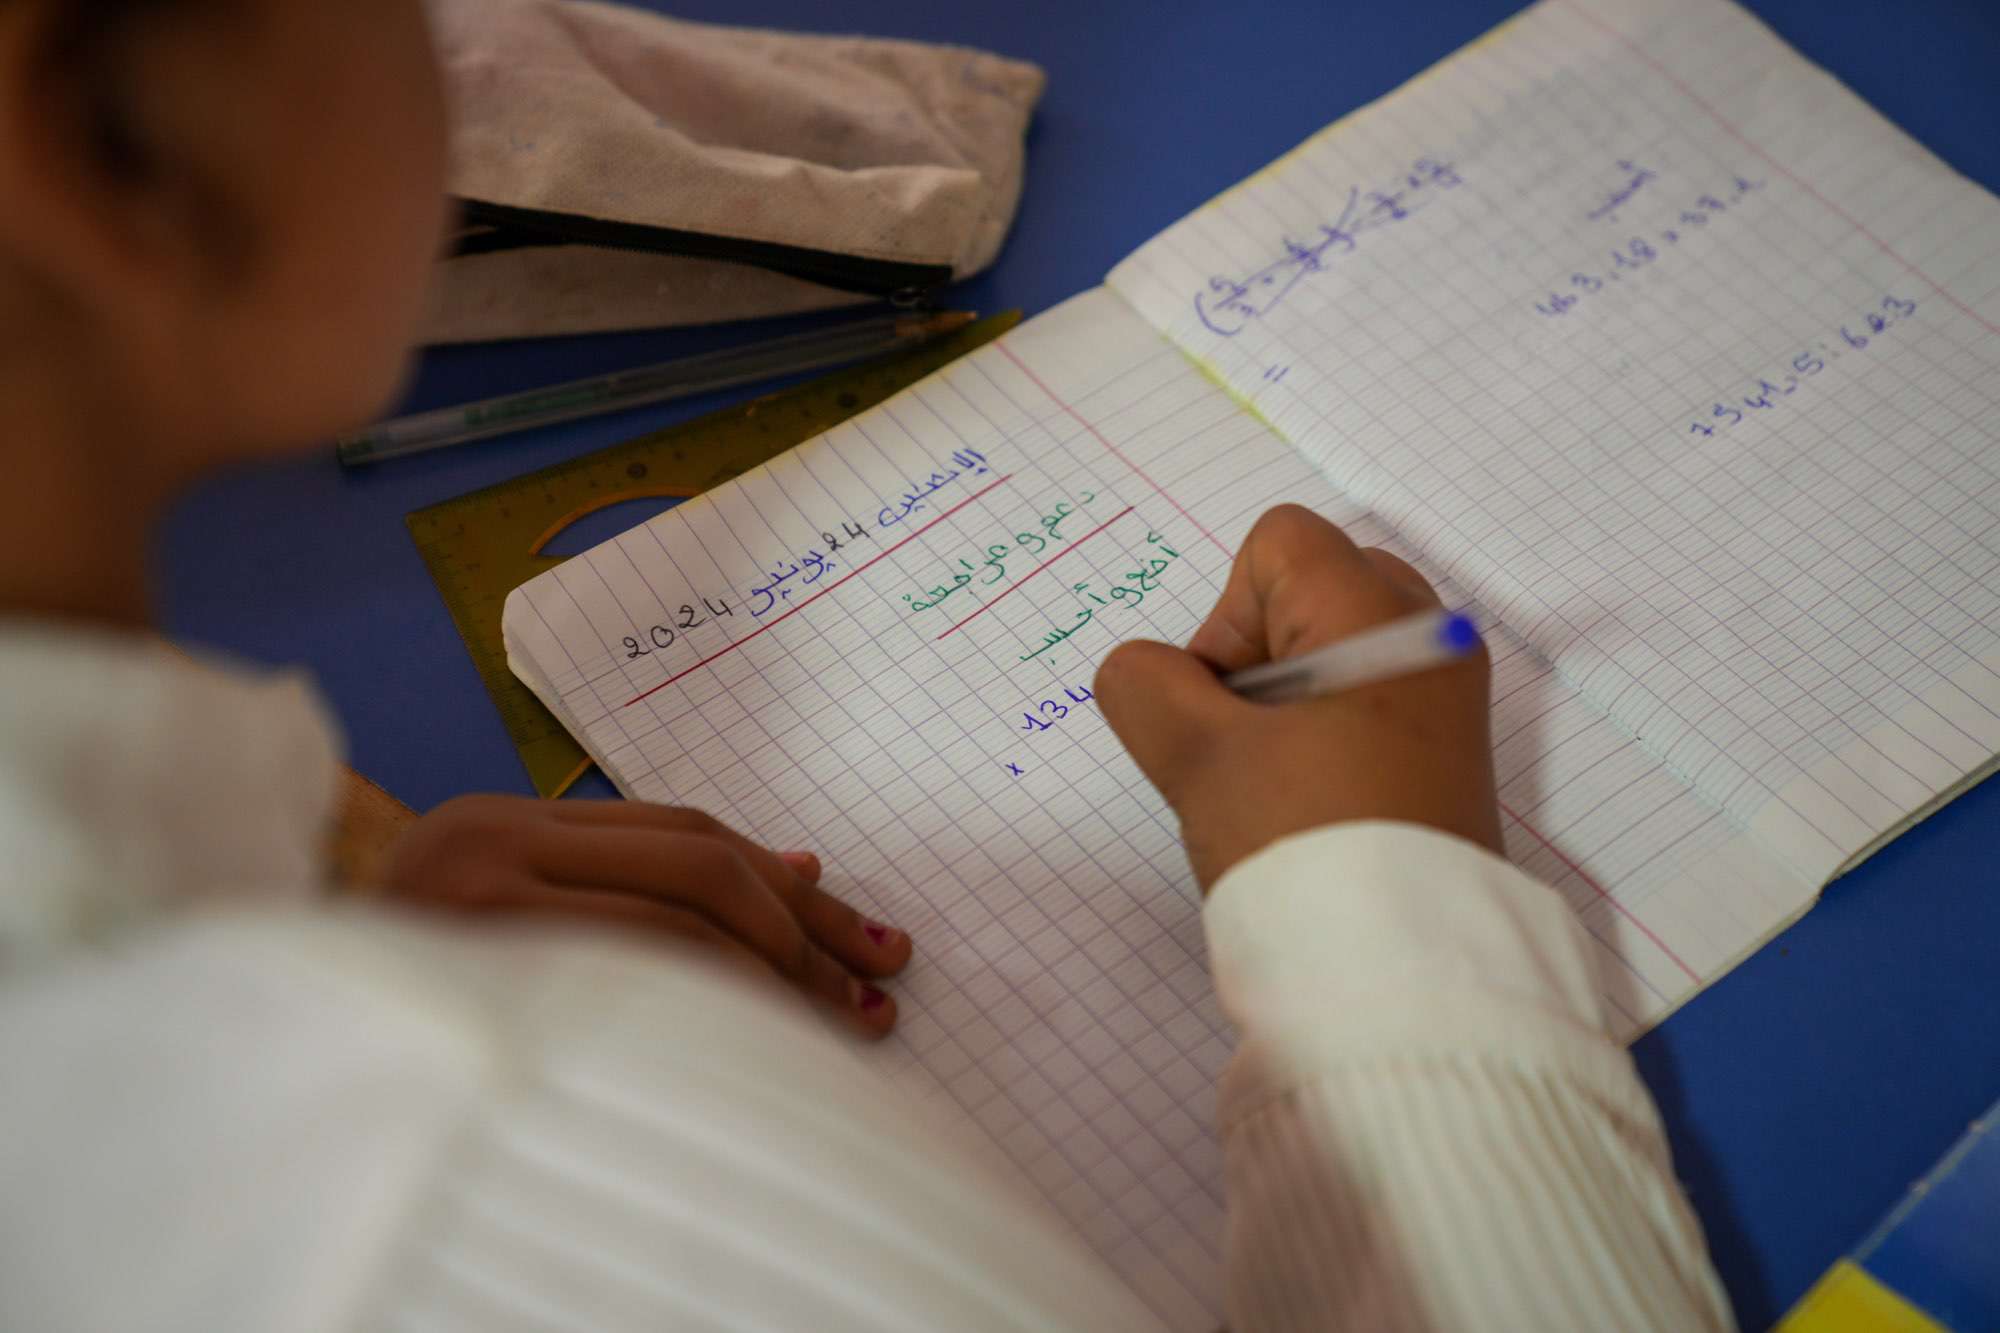 الاثنين 24 يونيو 2024
دعم و مراجعة
أضع و أحسب
134
x
أحسب
463,18 x 37,2
7541,5 : 623
=